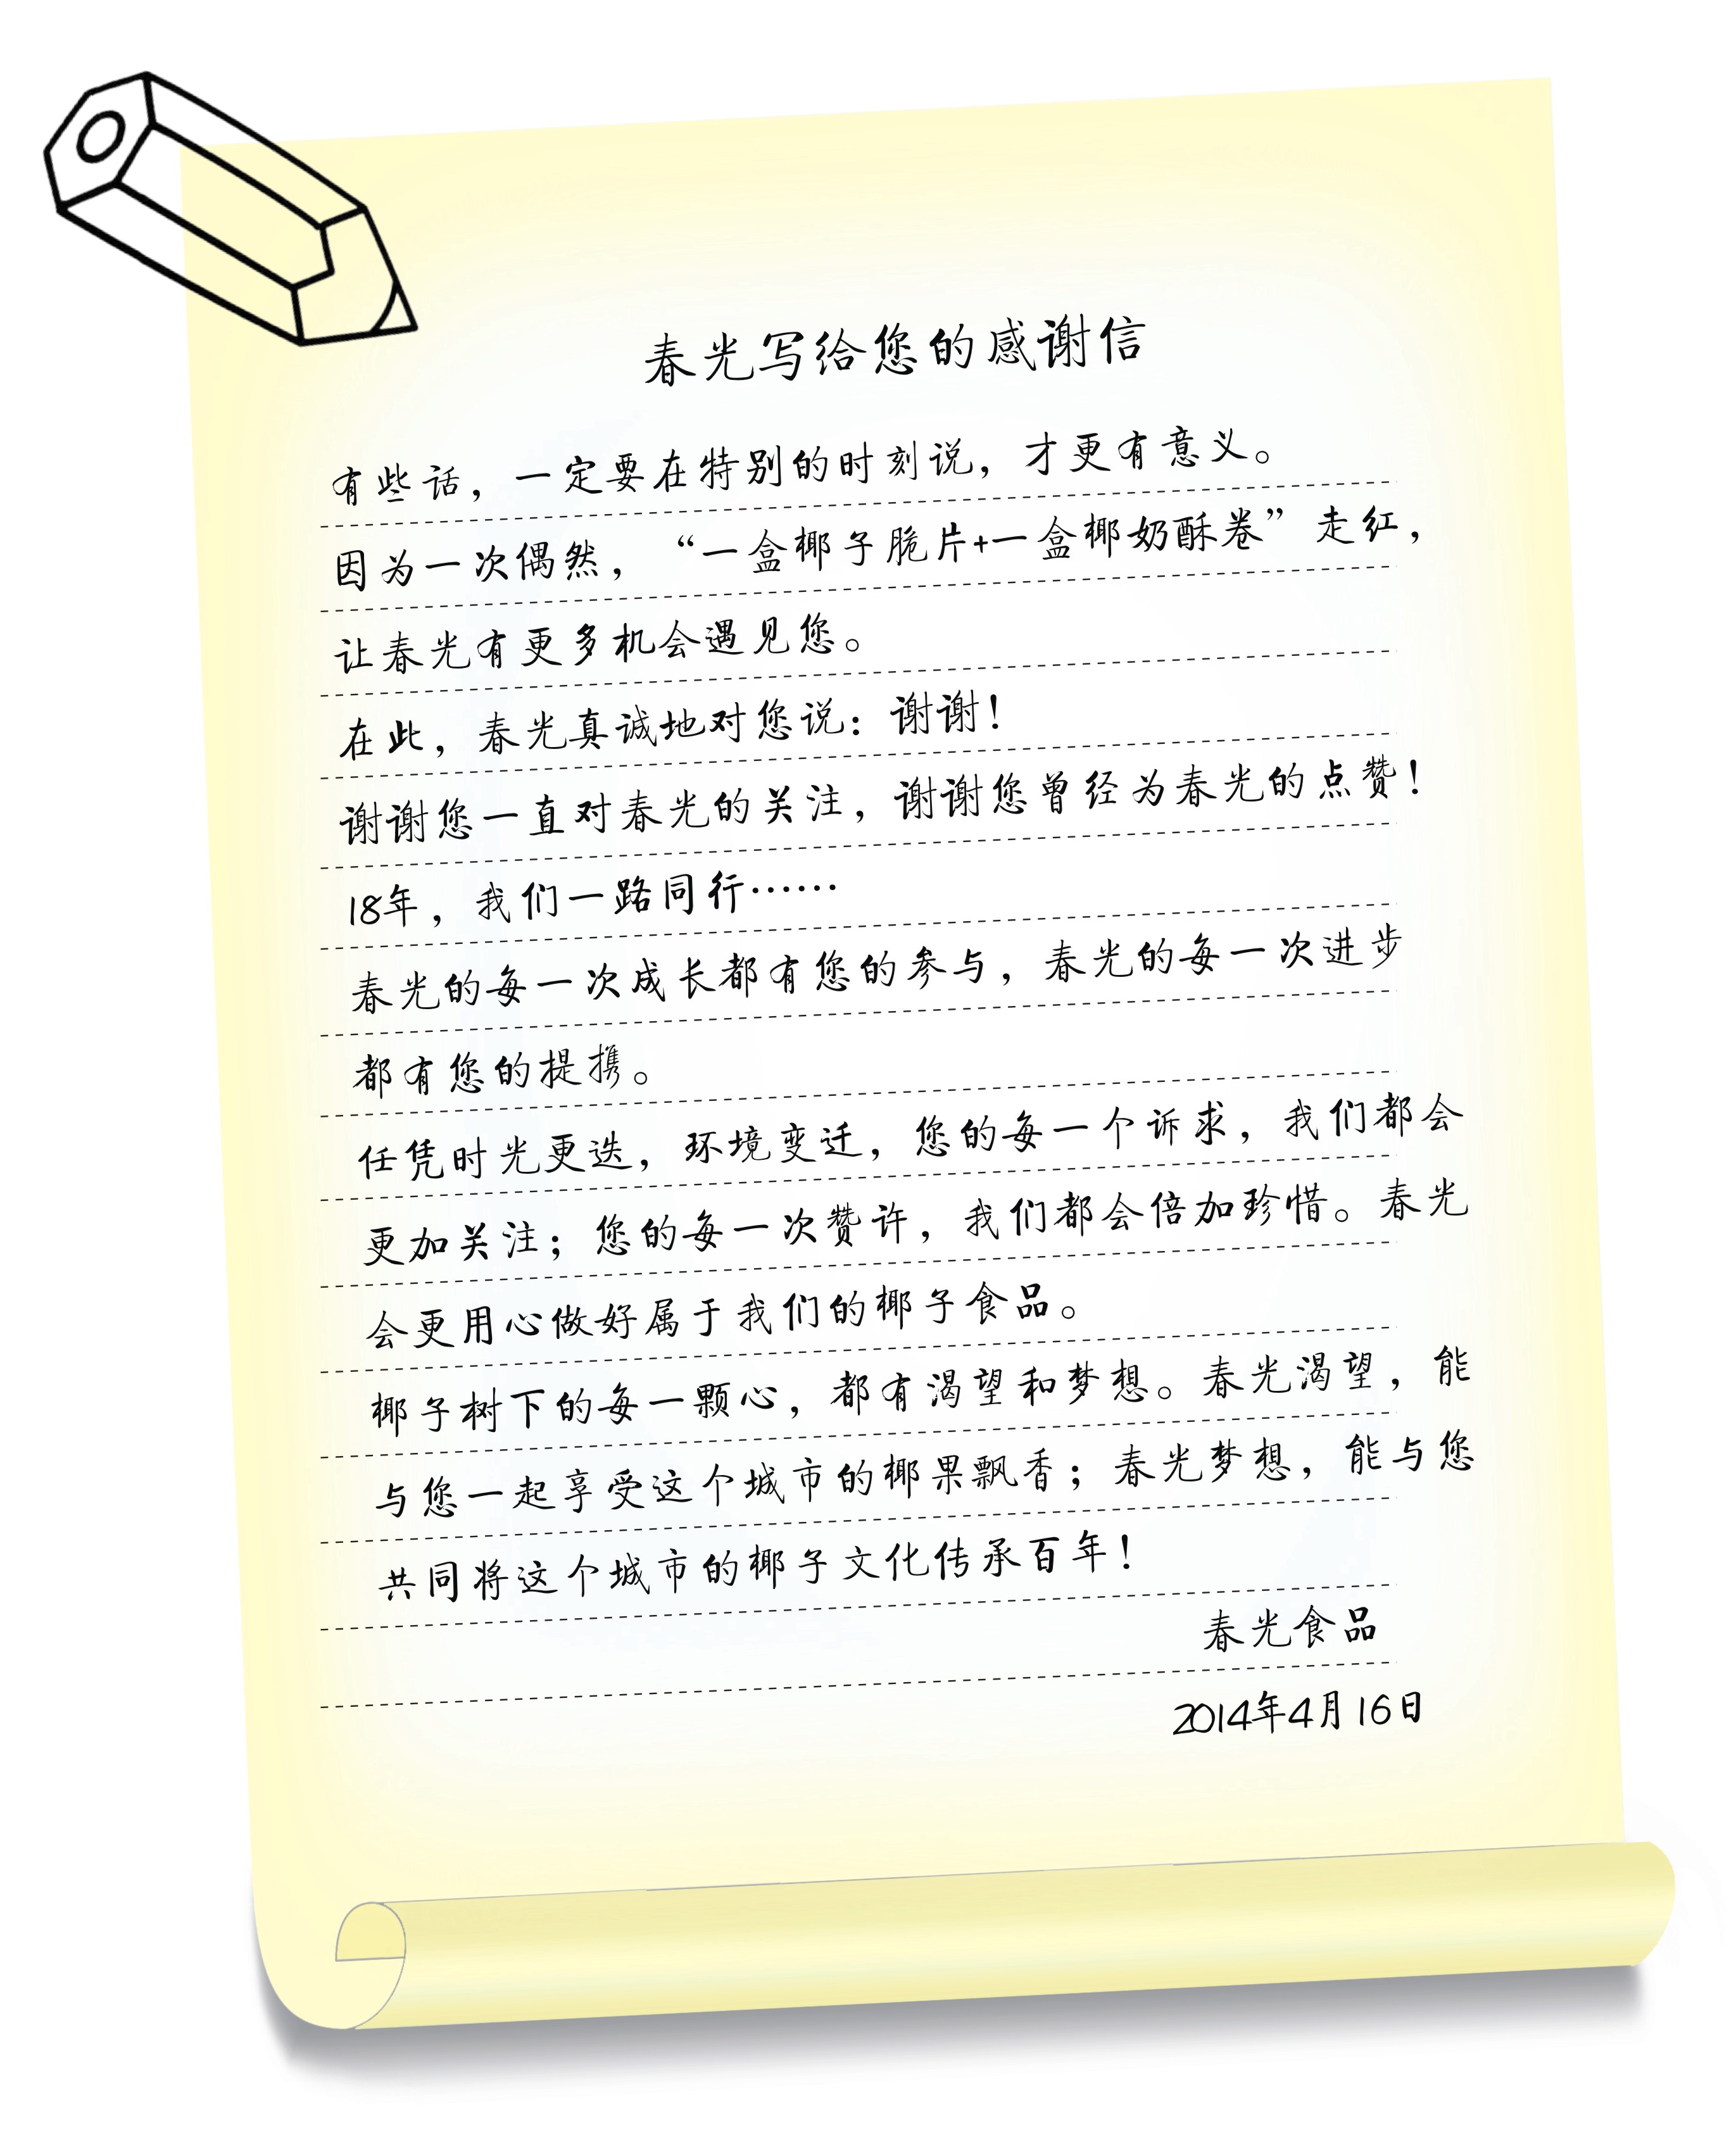 春光写给您的感谢信
有些话，一定要在特别的时刻说，才更有意义。
因为一次偶然，“一盒椰子脆片+一盒椰奶酥卷”走红，
让春光有更多机会遇见您。
在此，春光真诚地对您说：谢谢！
谢谢您一直对春光的关注，谢谢您曾经为春光的点赞！
18年，我们一路同行……
春光的每一次成长都有您的参与，春光的每一次进步
都有您的提携。
任凭时光更迭，环境变迁，您的每一个诉求，我们都会
更加关注；您的每一次赞许，我们都会倍加珍惜。春光
会更用心做好属于我们的椰子食品。
椰子树下的每一颗心，都有渴望和梦想。春光渴望，能
与您一起享受这个城市的椰果飘香；春光梦想，能与您
共同将这个城市的椰子文化传承百年！
春光食品
2014年4月16日